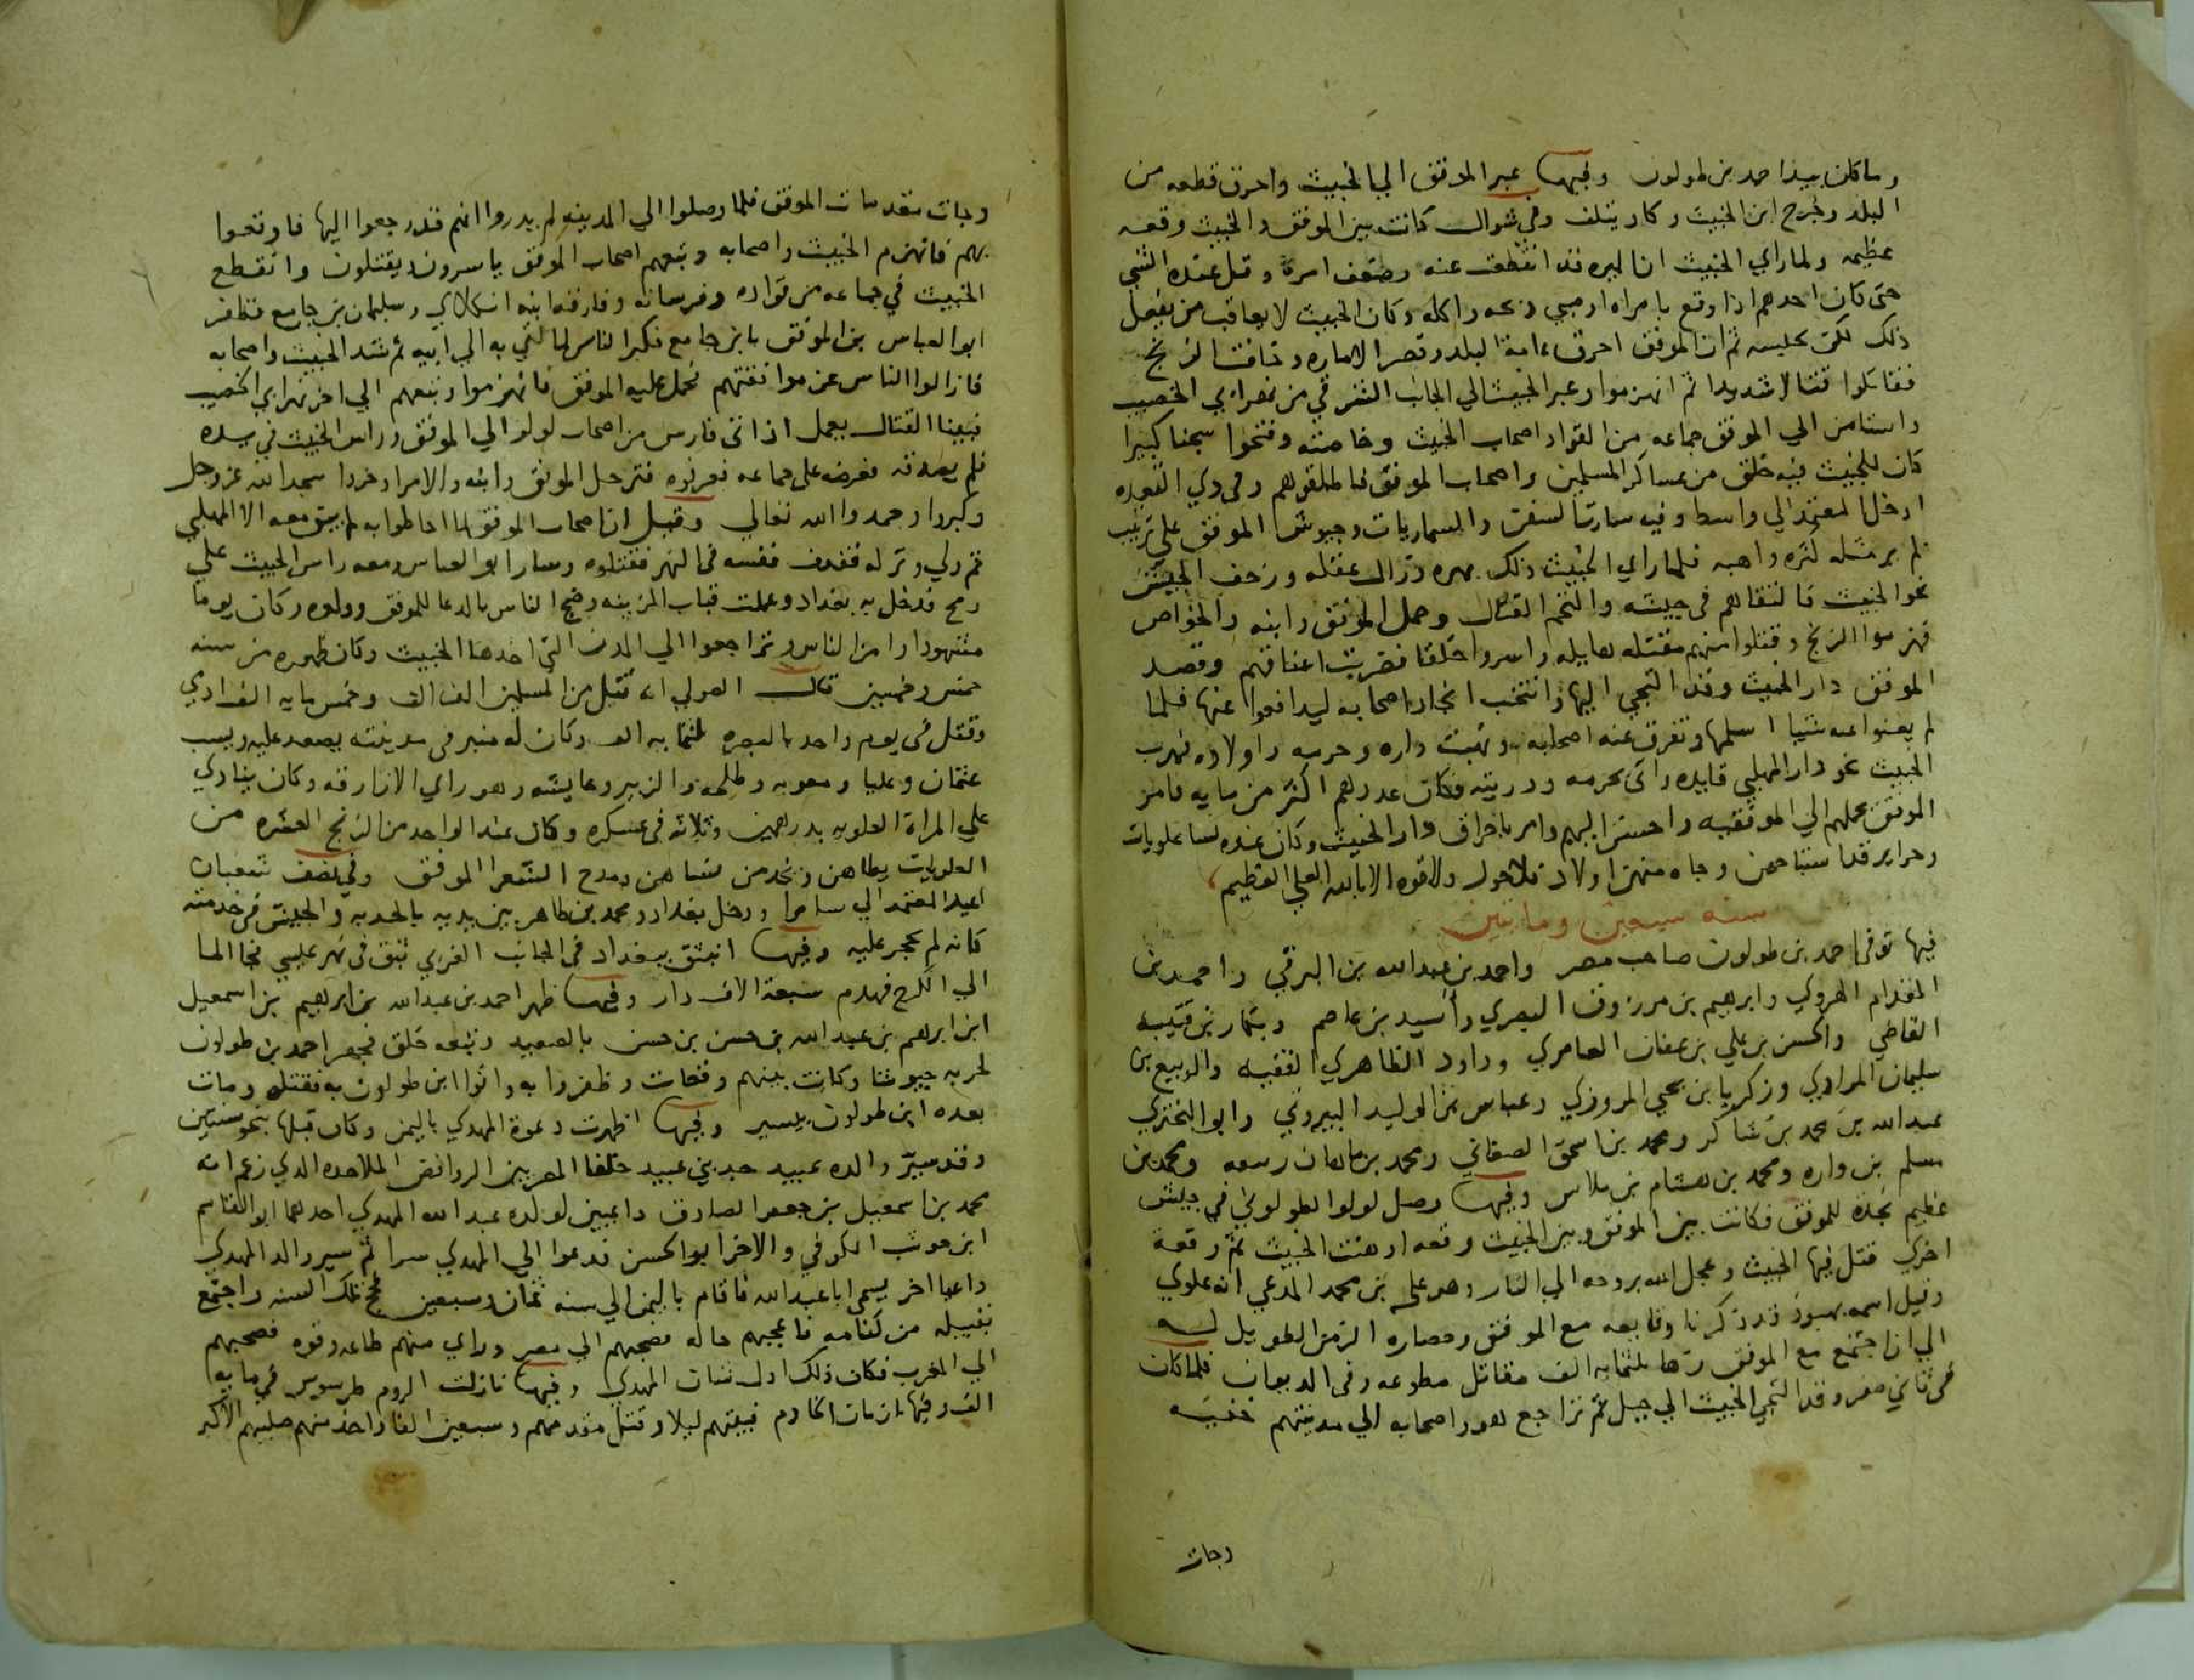 وما كان بيد احمد بن طولون وفيها عبر الموفق الي الخبيث واحرق قطعه من
البلد وجرح ابن الخبيث وكاد يتلف وفي شوال كانت بين الموفق والخبيث وقعه
عظيمه ولما راي الخبيث ان الميره قد انقطعت عنه وضعف امره وقل عنده الشي
حتى كان احدهم اذا وقع بامراه او صبي ذبحه واكله وكان الخبيث لا يعاقب من يفعل
ذلك لكن يحبسه ثم ان الموفق احرق عامة البلد وقصر الاماره وخافت الزنج
فقاتلوا قتالا شديدا ثم انهزموا وعبر الخبيث الي الجانب الشرقي من نهر ابي الخصيب
واستامن الي الموفق جماعه من القواد اصحاب الخبيث وخاصته وفتحوا سجنا كبيرا
كان للخبيث فيه خلق من عساكر المسلمين واصحاب الموفق فاطلقوهم وفي ذي القعده
ادخل المعتمد الي واسط وفيه سارت السفن والسماريات وجيوش الموفق علي ترتيب
لم ير مثله كثره واهبه فلما راي الخبيث ذلك بهره وزال عقله وزحف الجيش
نحو الخبيث فالتقاهم في جيشه والتحم القتال وحمل الموفق وابنه والخواص
فهزموا الزنج وقتلوا منهم مقتله هايله واسروا خلقا فضربت اعناقهم وقصد
الموفق دار الخبيث وقد التجي اليها وانتخب انجاد اصحابه ليدافعوا عنها فلما
لم يغنوا عنه شيا اسلمها وتفرق عنه اصحابه ونهبت داره وحرمه واولاده فهرب
الخبيث نحو دار المهلبي قايده واتى بحرمه وذريته فكان عددهم اكثر من مايه فامر
الموفق بحملهم الي الموفقيه واحسن اليهم وامر باحراق دار الخبيث وكان عنده نسا علويات
وحراير قد استباحهن وجاه منهن اولاد فلا حول ولا قوه الا بالله العلي العظيم
سنه سبعين ومائتين
فيها توفى احمد بن طولون صاحب مصر واحمد بن عبد الله بن البرقي واحمد بن
المقدام الهروي وابرهيم بن مرزوق البصري وأسيد بن عاصم وبكار بن قتيبه
القاضي والحسن بن علي بن عفان العامري وداود الظاهري الفقيه والربيع بن
سليمان المرادي وزكريا بن يحي المروزي وعباس بن الوليد البيروتي وابو البختري
عبد الله بن محمد بن شاكر ومحمد بن اسحق الصغاني ومحمد بن ماهان رسعه ومحمد بن
مسلم بن واره ومحمد بن هشام بن ملاس وفيها وصل لولوا الطولوني في جيش
عظيم نجدة للموفق فكانت بين الموفق وبين الخبيث وقعه اوهنت الخبيث ثم وقعة
اخري قتل فيها الخبيث وعجل الله بروحه الي النار وهو علي بن محمد المدعي انه علوي
وقيل اسمه بهبوذ قد ذكرنا وقايعه مع الموفق وحصاره الزمن الطويل له
الي ان اجتمع مع الموفق زها ثلثمايه الف مقاتل مطوعه وفي الديوان فلما كان
في ثاني صفر وقد التجي الخبيث الي جبل ثم تراجع هو واصحابه الي مدينتهم خفيه
وجات
وجات مقدمات الموفق فلما وصلوا الي المدينه لم يدروا انهم قد رجعوا اليها فاوقعوا
بهم فانهزم الخبيث واصحابه وتبعهم اصحاب الموفق ياسرون ويقتلون وانقطع
الخبيث في جماعه من قواده وفرسانه وفارقه ابنه انكلاي وسليمان بن جامع فظفر
ابو العباس بن الموفق بابن جامع فكبر الناس لما اتي به الي ابيه ثم شد الخبيث واصحابه
فازالوا الناس عن مواقفهم فحمل عليه الموفق فانهزموا وتبعهم الي اخر نهر ابي الخصيب
فبينا القتال يعمل اذ اتى فارس من اصحاب لولو الي الموفق وراس الخبيث في يده
فلم يصدقه فعرضه علي جماعه فعرفوه فترجل الموفق وابنه والامرا وخروا سجدا لله عز وجل
وكبروا وحمدوا الله تعالي وقيل ان اصحاب الموفق لما احاطوا به لم يبق معه الا المهلبي
ثم ولي وتركه فقذف نفسه في النهر فقتلوه وسار ابو العباس ومعه راس الخبيث علي
رمح فدخل به بغداد وعملت قباب الزينه وضج الناس بالدعا للموفق وولده وكان يوما
مشهودا وامن الناس وتراجعوا الي المدن التي اخذها الخبيث وكان ظهوره من سنه
خمس وخمسين قال الصولي انه قتل من المسلمين الف الف وخمس مايه الف ادمي
وقتل في يوم واحد بالبصره ثلثمايه الف وكان له منبر في مدينته يصعد عليه ويسب
عثمان وعليا ومعويه وطلحه والزبير وعايشه وهو راي الازارقه وكان ينادي
علي المراة العلويه بدرهمين وثلاثه في عسكره وكان عند الواحد من الزنج العشره من
العلويات يطاهن ويخدمن نساهن ومدح الشعرا الموفق وفي نصف شعبان
اعيد المعتمد الي سامرا ودخل بغداد ومحمد بن طاهر بين يديه بالحربه والجيش في خدمته
كانه لم يحجر عليه وفيها انبثق ببغداد في الجانب الغربي بثق في نهر عيسي فجا الما
الي الكرخ فهدم سبعة الاف دار وفيها ظهر احمد بن عبد الله بن ابرهيم بن اسمعيل
ابن ابرهيم بن عبد الله بن حسن بن حسن بالصعيد وتبعه خلق فجهز احمد بن طولون
لحربه جيوشا وكانت بينهم وقعات وظفروا به واتوا ابن طولون به فقتله ومات
بعده ابن طولون بيسير وفيها اظهرت دعوة المهدي باليمن وكان قبلها بنحو سنتين
وقد سيّر والده عبيد جد بني عبيد خلفا المصريين الروافض الملاحده الذي زعم انه
محمد بن اسمعيل بن جعفر الصادق داعيين لولده عبد الله المهدي احدهما ابو القاسم
ابن حوشب الكوفي والاخر ابو الحسن فدعوا الي المهدي سرا ثم سير والد المهدي
داعيا اخر يسمى ابا عبد الله فاقام باليمن الي سنه ثمان وسبعين فحج تلك السنه واجتمع
بقبيله من كتامه فاعجبهم حاله فصحبهم الي مصر وراي منهم طاعه وقوه فصحبهم
الي المغرب فكان ذلك اول شان المهدي وفيها نازلت الروم طرسوس في مايه
الف وفيها يازمان الخادم فبيتهم ليلا وقتل مقدمهم وسبعين الفا واخذ منهم صليبهم الاكبر